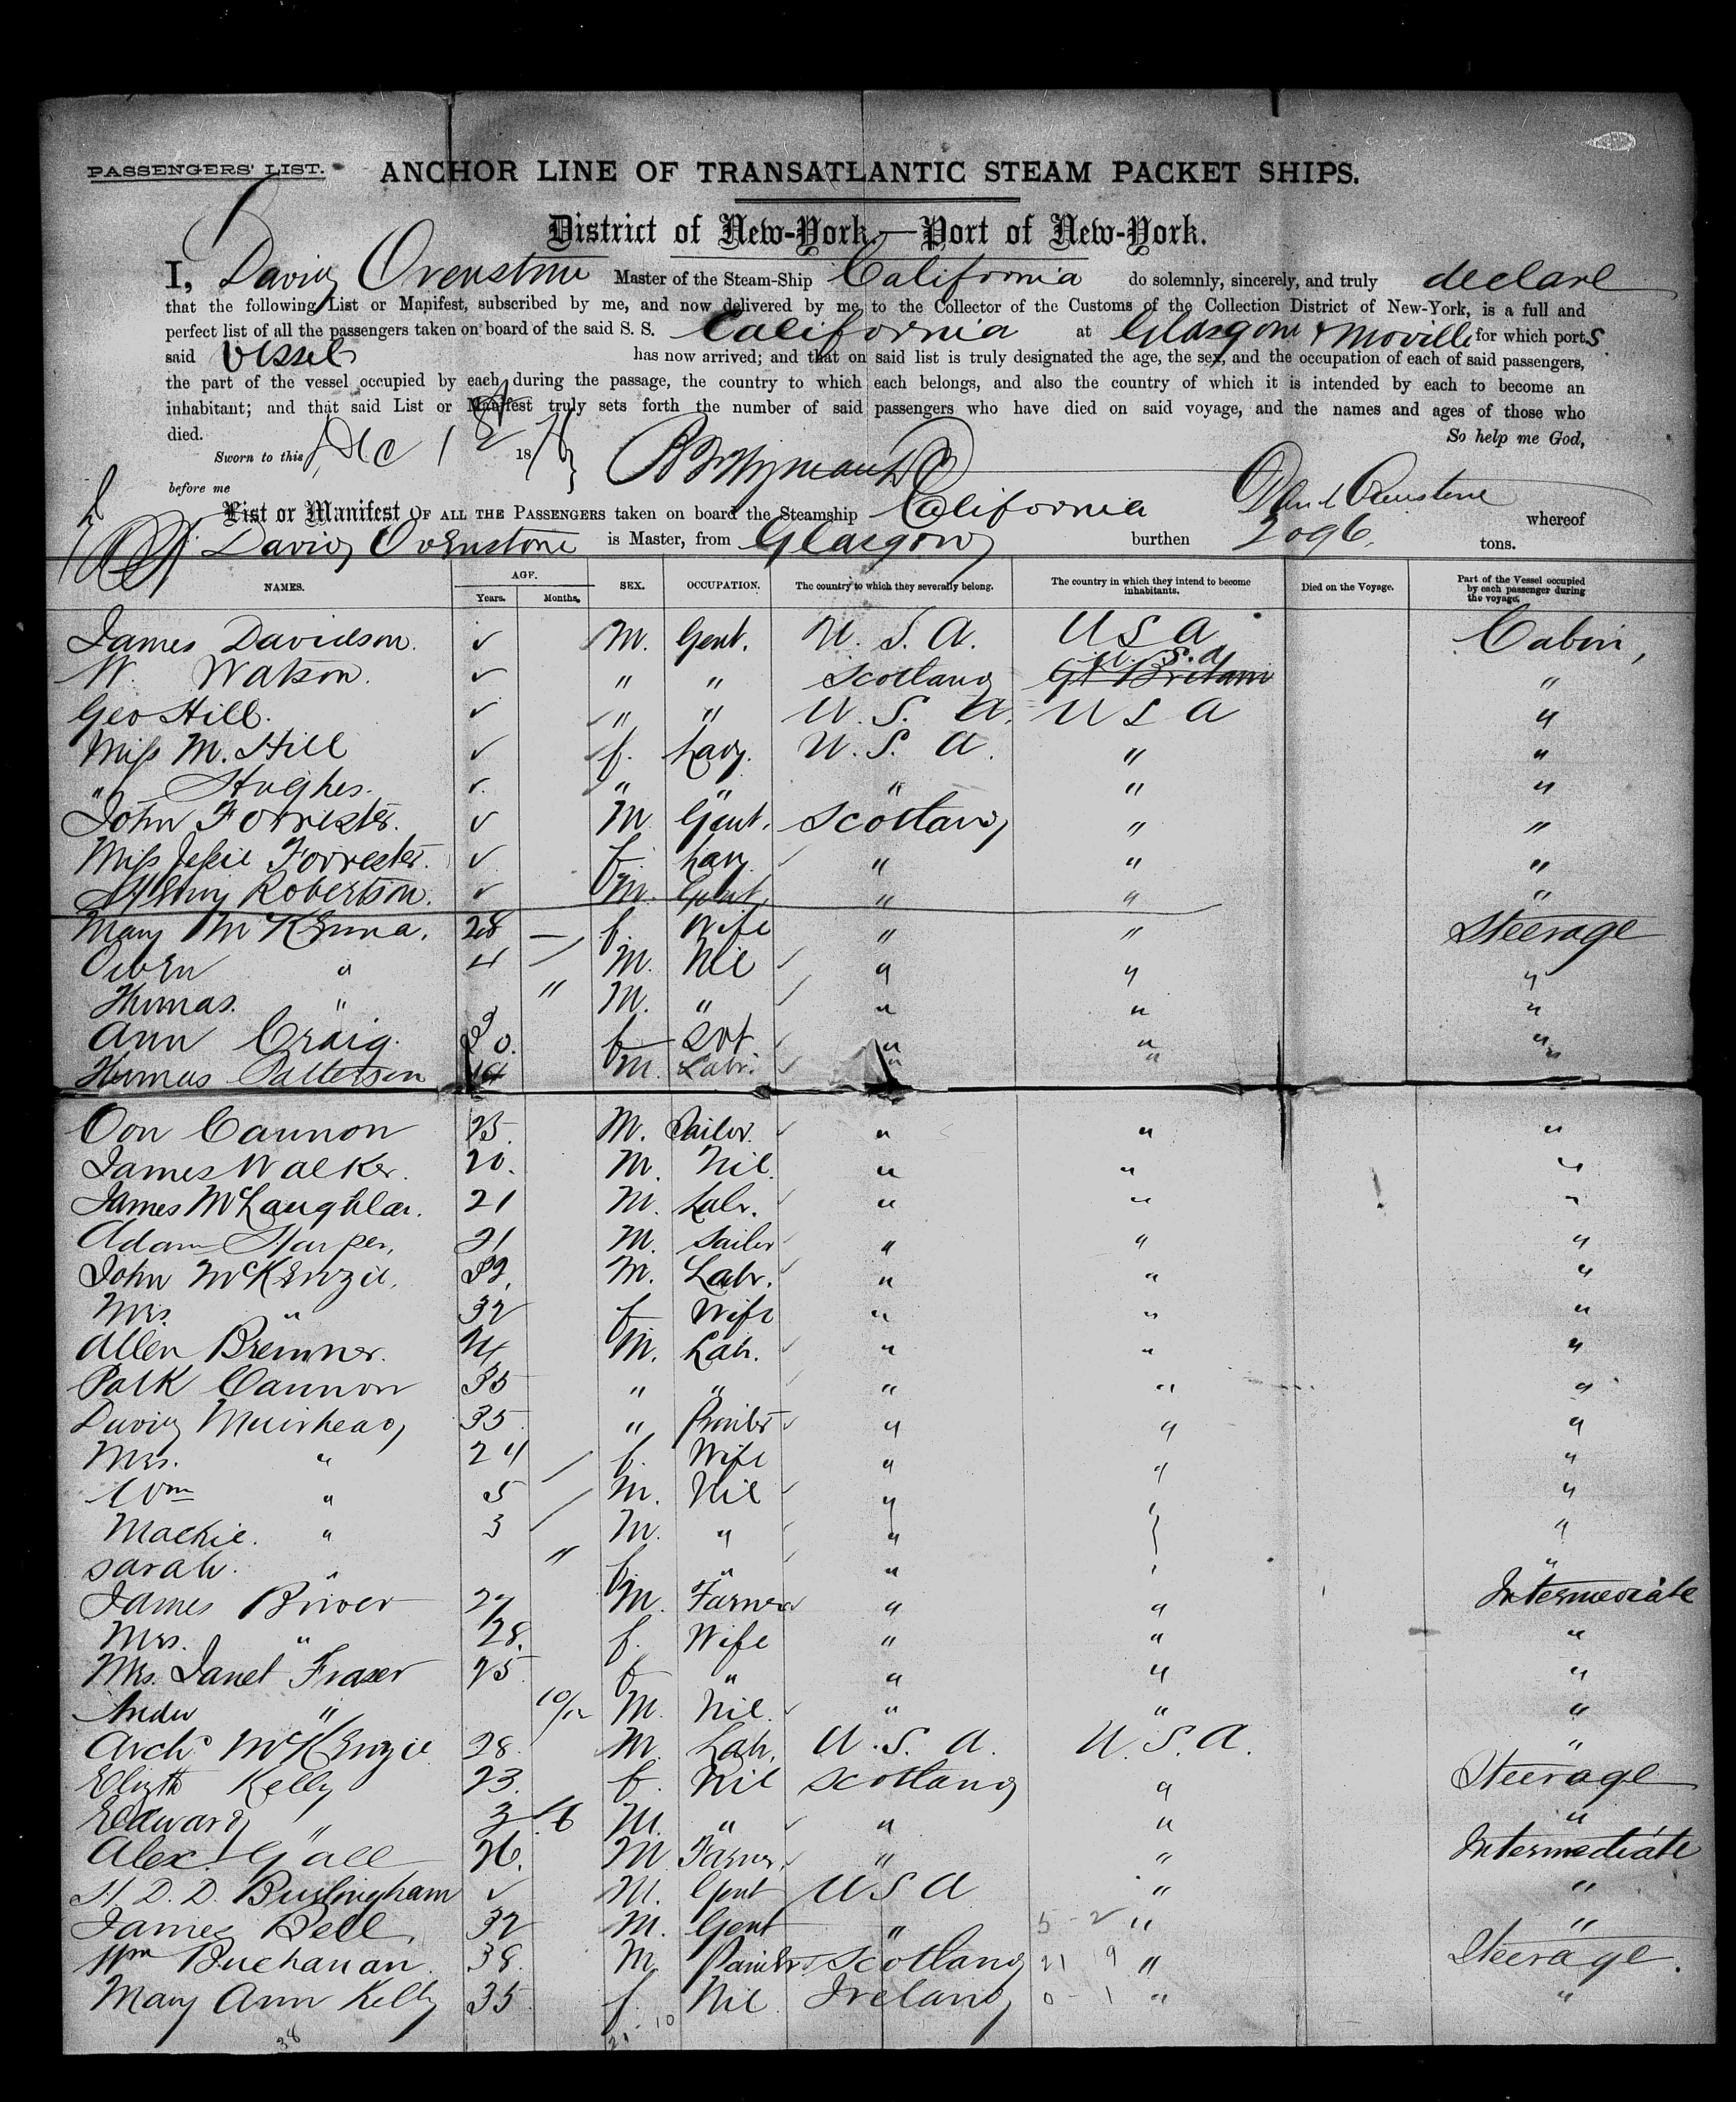 PASSENGERS' LIST. ANCHOR LINE OF TRANSATLANTIC STEAM PACKET SHIPS.
District of New-York.—Port of New-York.
I, David Ovenstone Master of the Steam-Ship California do solemnly, sincerely, and truly declare
that the following List or Manifest, subscribed by me, and now delivered by me to the Collector of the Customs of the Collection District of New-York, is a full and
perfect list of all the passengers taken on board of the said S. S. California at Glasgow & Moville for which ports
said vessel has now arrived; and that on said list is truly designated the age, the sex, and the occupation of each of said passengers,
the part of the vessel occupied by each during the passage, the country to which each belongs, and also the country of which it is intended by each to become an
inhabitant; and that said List or Manifest truly sets forth the number of said passengers who have died on said voyage, and the names and ages of those who
died. So help me God,
Sworn to this Dec 12 18
before me David Ovenstone
List or Manifest OF ALL THE PASSENGERS taken on board the Steamship California whereof
David Ovenstone is Master, from Glasgow burthen 2096. tons.
NAMES. AGE. Years. Months. SEX. OCCUPATION. The country to which they severally belong. The country in which they intend to become inhabitants. Died on the Voyage. Part of the Vessel occupied by each passenger during the voyage.
James Davidson. ✓ M. Gent. U. S. A. U S A Cabin,
W. Watson. ✓ " " Scotland Gt Britain U. S. A "
Geo Hill. ✓ " " U. S. A. U S A "
Miss M. Hill ✓ f. Lady. U. S. A. " "
" Hughes. ✓ " " " " "
John Forrester. ✓ M Gent. Scotland " "
Miss Jessie Forrester. ✓ f. Lady " " "
Henry Robertson. ✓ M. Gent " " "
Mary McKenna. 28 — f. Wife " " Steerage
Owen " 4 M. Nil " " "
Thomas. " " M. " " " "
Ann Craig. 30. f " " "
Thomas Patterson M. Labr. " " "
Con Cannon 25. M. Sailor. " " "
James Walker. 20. M. Nil. " " "
James McLaughlan. 21 M. Labr. " " "
Adam Harper, 21 M. Sailor " " "
John McKenzie. 32. M. Labr. " " "
Mrs. " 32 f Wife " " "
Allen Bremner. 24 M. Labr. " " "
Patk Cannon 35 " " " " "
David Muirhead 35. " " " "
Mrs. " 24 f. Wife " " "
Wm " 5 M. Nil " "
Mackie. " 3 M. " " "
Sarah. " " f. " " "
James 27 M. Farmer " " Intermediate
Mrs. " 28. f. Wife " " "
Mrs. Janet Fraser 25 f " " " "
Andw " 10/12 M. Nil. " " "
Archd McKenzie 28. M. Labr. U. S. A. U. S. A. "
Elizth Kelly 23. f. Nil Scotland " Steerage
Edward " 3 6 M. " " " "
Alex. Gall 26. M Farmer. " " Intermediate
H. D. D. Burlingham ✓ M. Gent U S A " "
James Bell. 32 M. Gent " 5 - 2 " "
Wm Buchanan. 38. M. Scotland 21 9 " Steerage.
Mary Ann Kelly 35 f. Nil Ireland 0 - 1 " "
38 21 - 10